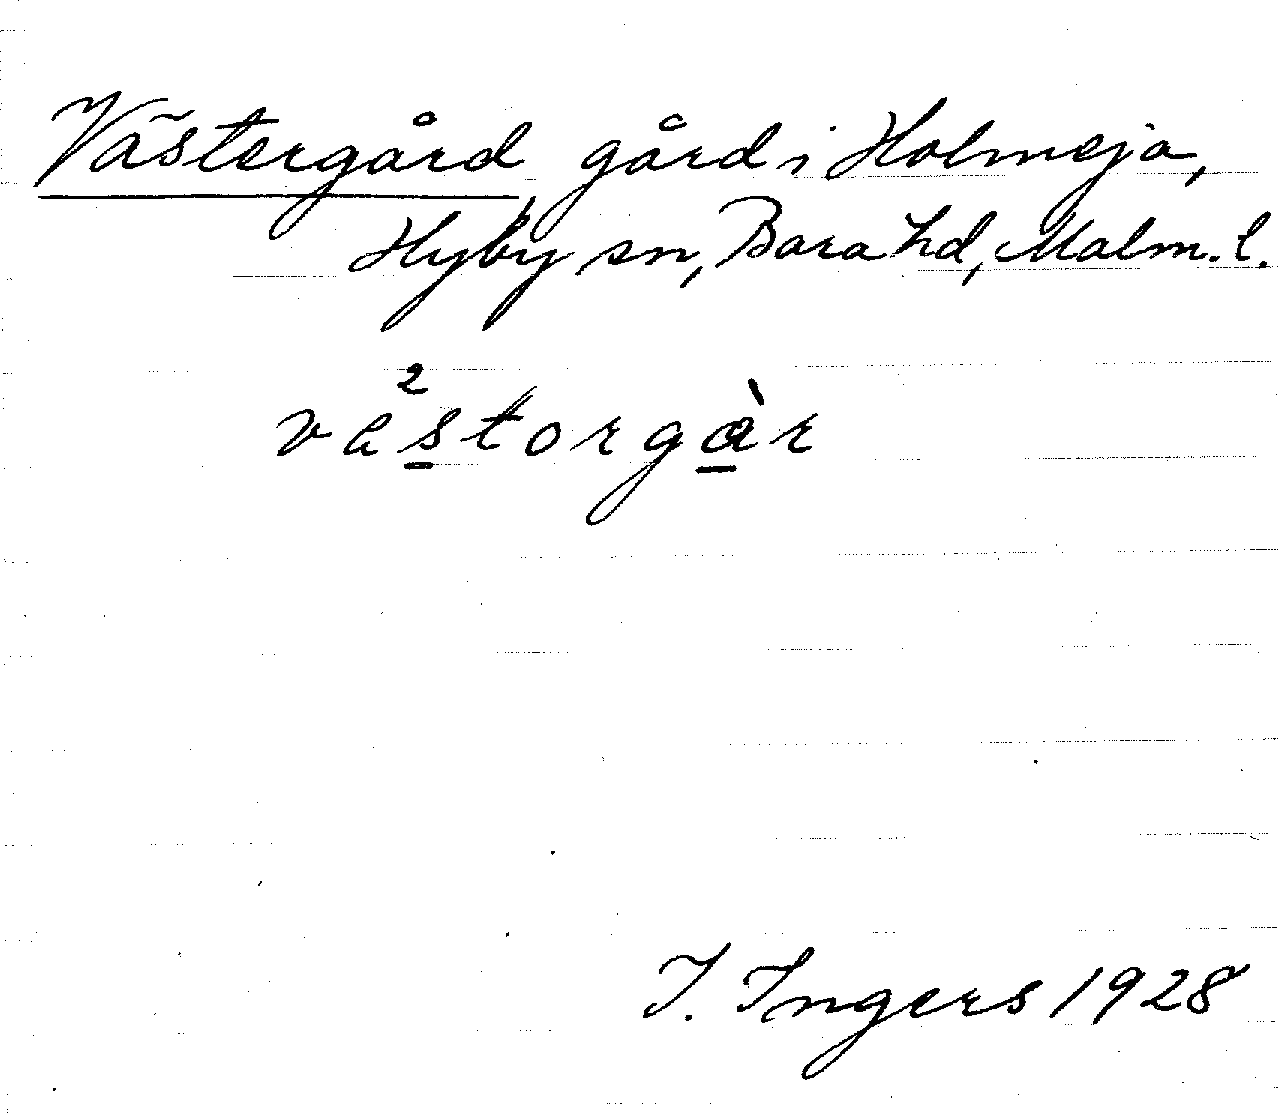 Västergård gård i Holmeja,
Hyby sn, Bara hd, Malm. l.
va²storgàr
I. Ingers 1928